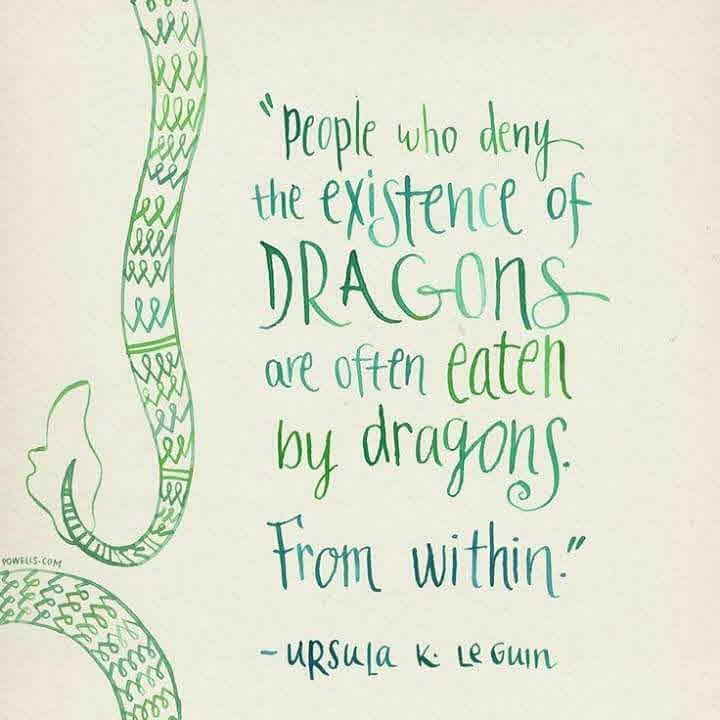 "People who deny
the existence of
DRAGONS
are often eaten
by dragons.
From within."
- URSULA K. LE GUIN
POWELLS.COM